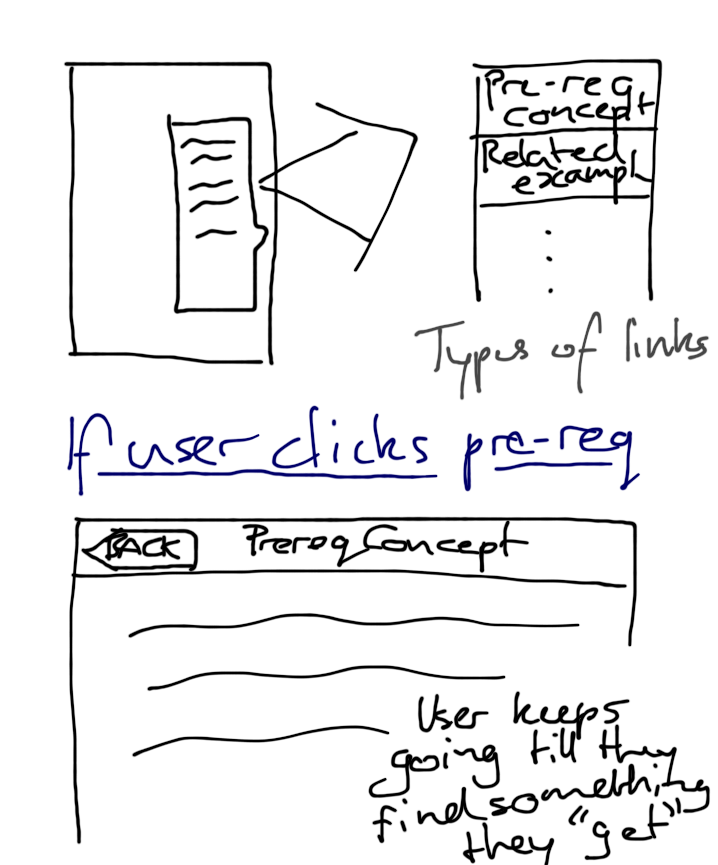 Pre-req
concept
Related
exampl
Types of links
If user clicks pre-req
BACK
Prereq Concept
User keeps
going till they
find something
they "get"